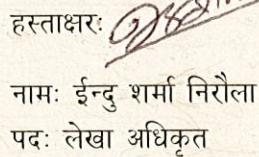 हस्ताक्षरः
नामः ईन्दु शर्मा निरौला
पदः लेखा अधिकृत